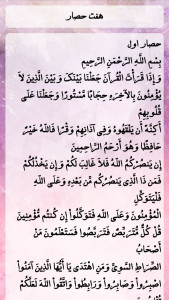 هفت حصار
حصار اول
بِسْمِ اللَّهِ الرَّحْمَنِ الرَّحِيمِ
وَ إِذَا قَرَأْتَ الْقُرآنَ جَعَلْنَا بَيْنَكَ وَ بَيْنَ الَّذِينَ لاَ
يُؤْمِنُونَ بِالآخِرَهِ حِجَابًا مَّسْتُورًا وَجَعَلْنَا عَلَى
قُلُوبِهِمْ
أَكِنَّهً أَن يَفْقَهُوهُ وَفِي آذَانِهِمْ وَقْرًا فَاللَّهُ خَيْرٌ
حَافِظًا وَهُوَ أَرْحَمُ الرَّاحِمِينَ
إِن يَنصُرْكُمُ اللَّهُ فَلاَ غَالِبَ لَكُمْ وَإِن يَخْذُلْكُمْ
فَمَن ذَا الَّذِي يَنصُرُكُم مِّن بَعْدِهِ وَعَلَى اللَّهِ
فَلْيَتَوَكَّلِ
الْمُؤْمِنُونَ وَعَلَى اللَّهِ فَتَوَكَّلُواْ إِن كُنتُم مُّؤْمِنِينَ
قُلْ كُلٌّ مُّتَرَبِّصٌ فَتَرَبَّصُوا فَسَتَعْلَمُونَ مَنْ
أَصْحَابُ
الصِّرَاطِ السَّوِيِّ وَمَنِ اهْتَدَى يَا أَيُّهَا الَّذِينَ آمَنُواْ
اصْبِرُواْ وَصَابِرُواْ وَرَابِطُواْ وَاتَّقُواْ اللَّهَ لَعَلَّكُمْ